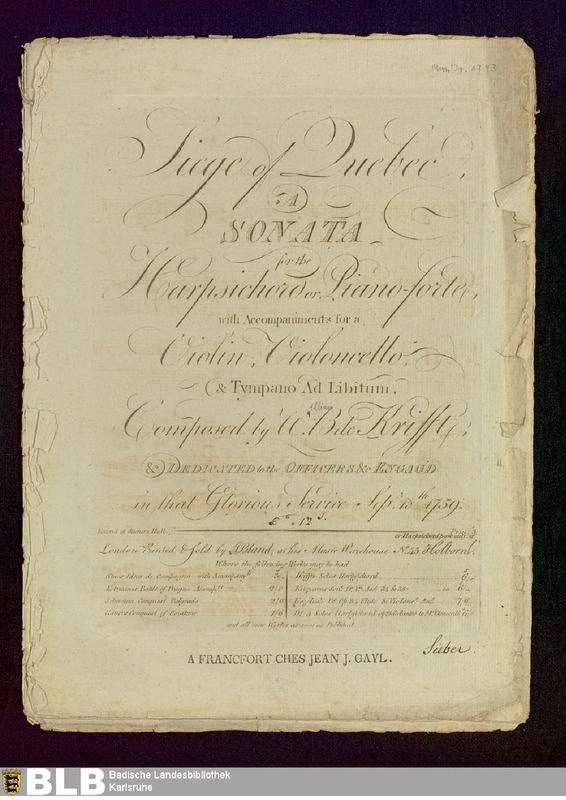 Mus. Dr. 1743
Siege of Quebec,
A
SONATA
for the
Harpsichord or Piano-forte,
with Accompaniments for a
Violin, Violoncello,
& Tympano Ad Libitum,
Composed by W. B. de Krifft,
& DEDICATED to the OFFICERS &c ENGAGD
in that Glorious Service Sepr. 13th 1759.
Enterd at Staners Hall.
Price
or Harpsichord part only
London Printed & Sold by J. Bland, at his Music Warehouse No. 45 Holborn.
Where the following Works may be had
Kotzwaras Battle of Prague Accomps. 2/0
Schroeters Conquest Belgrade 2/0
and all new Works as soon as Publishd.
Sieber.
A FRANCFORT CHES JEAN J. GAYL.
BLB
Badische Landesbibliothek
Karlsruhe